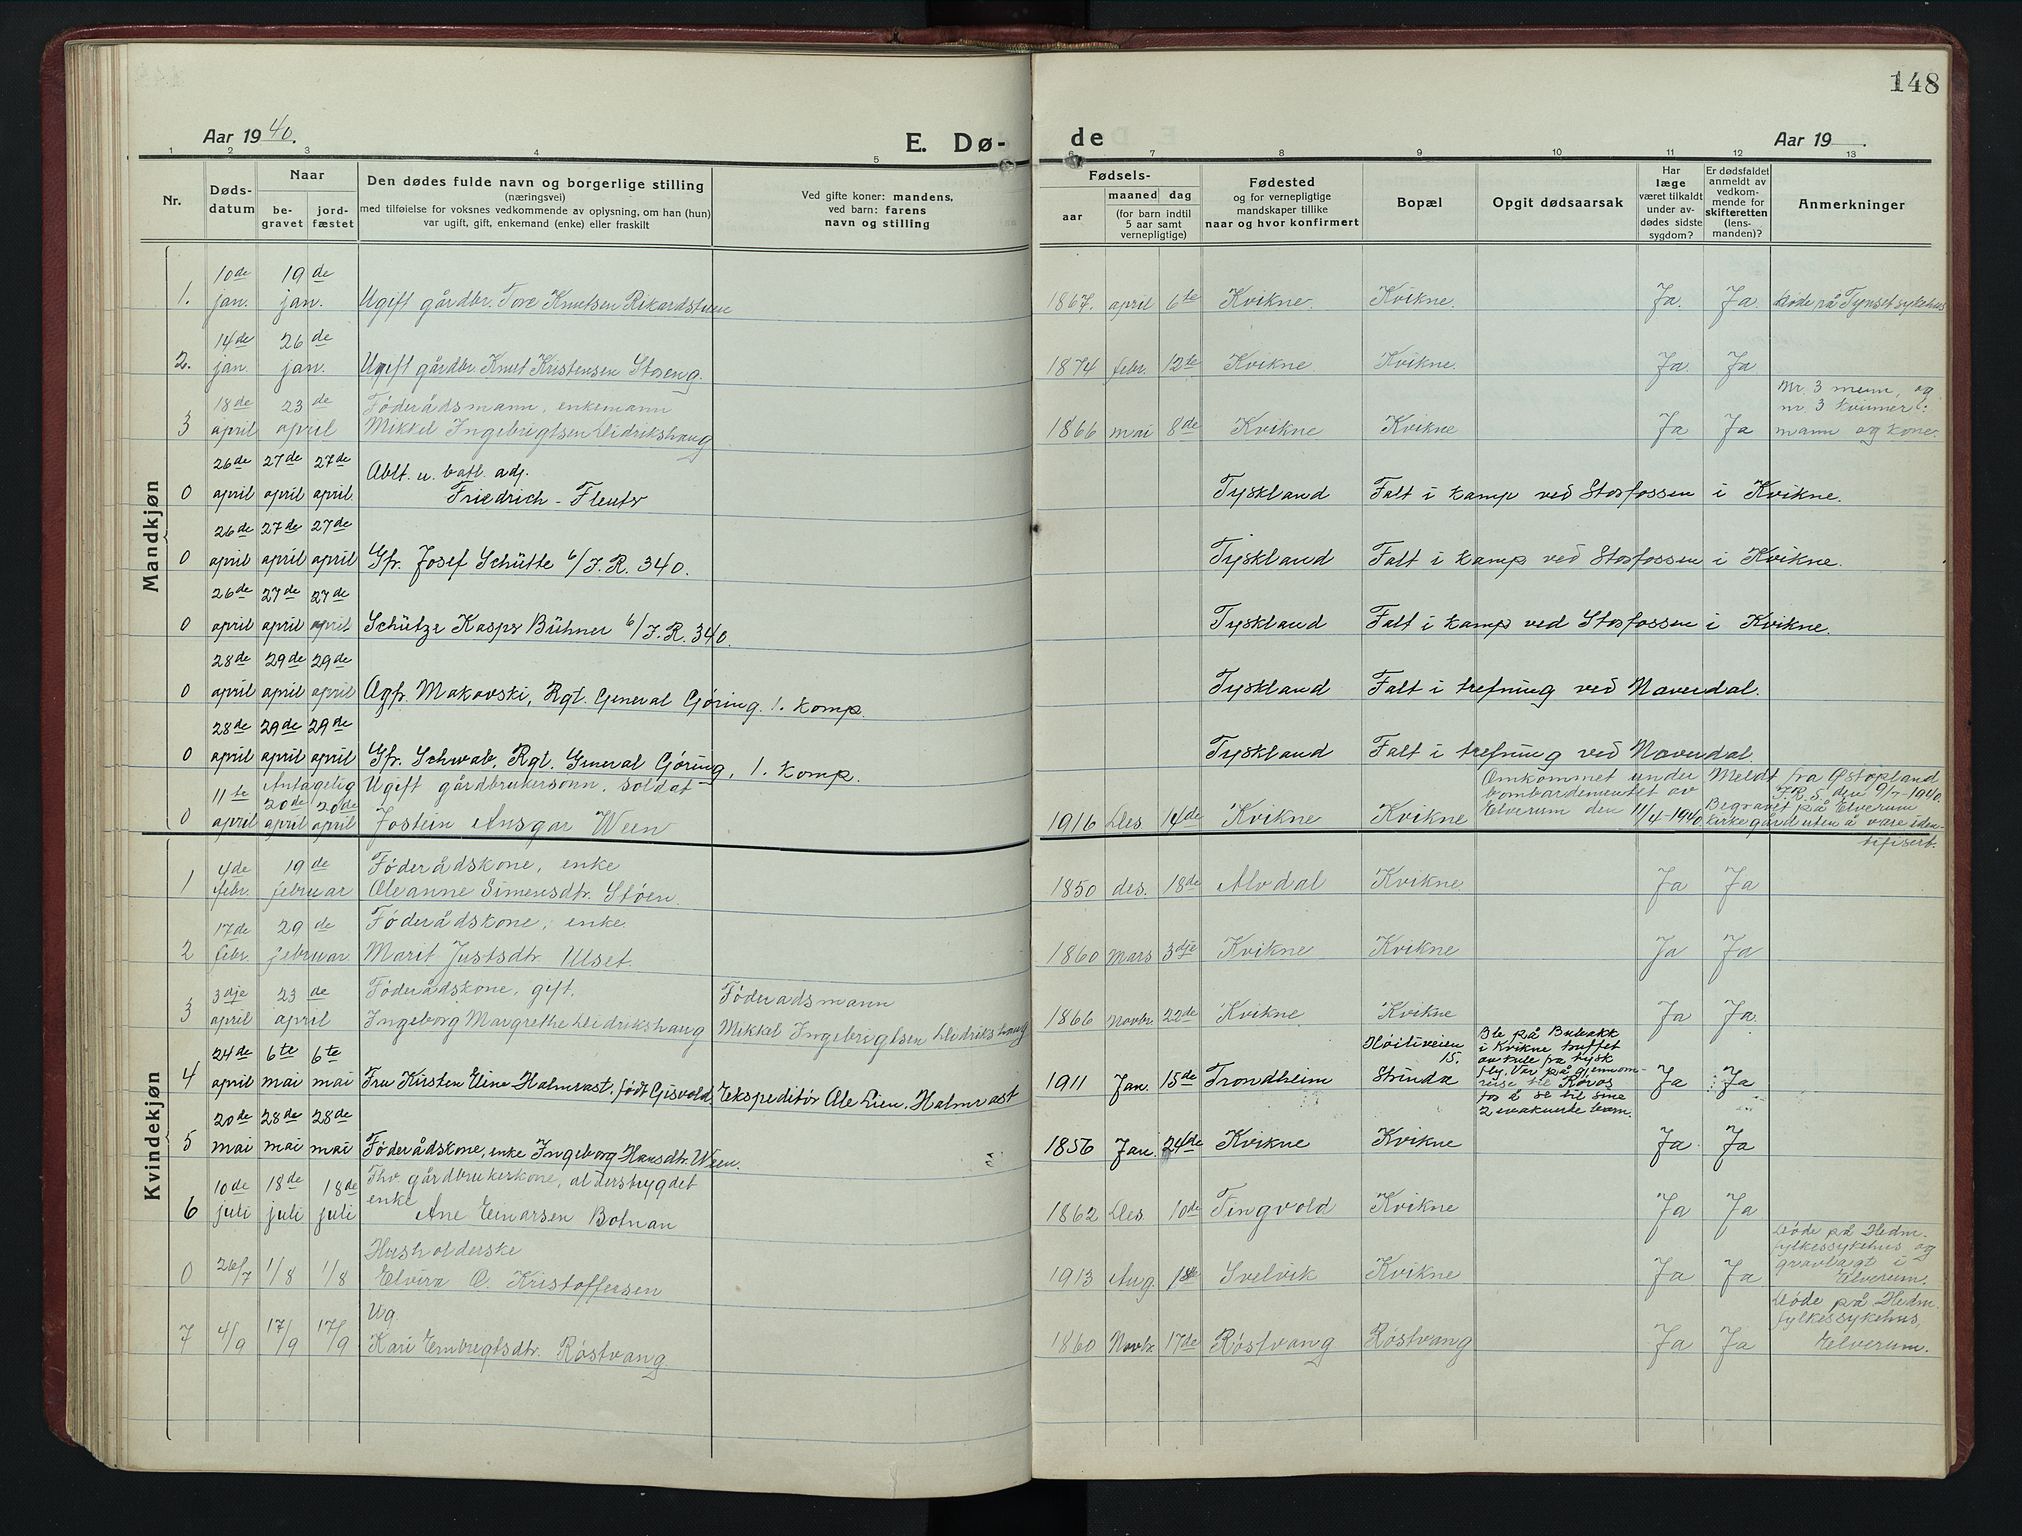 148
Aar 1940.
E. Dø-
de
Aar 19 .
1 2 3 4 5 6 7 8 9 10 11 12 13
Nr.
Døds-
datum
Naar
be-
gravet
jord-
fæstet
Den dødes fulde navn og borgerlige stilling
(næringsvei)
med tilføielse for voksnes vedkommende av oplysning, om han (hun)
var ugift, gift, enkemand (enke) eller fraskilt
Ved gifte koner: mandens,
ved barn: farens
navn og stilling
Fødsels-
aar
maaned dag
(for barn indtil
5 aar samt
vernepligtige)
Fødested
og for vernepligtige
mandskaper tillike
naar og hvor konfirmert
Bopæl
Opgit dødsaarsak
Har
læge
været tilkaldt
under av-
dødes sidste
sygdom?
Er dødsfaldet
anmeldt av
vedkom-
mende for
skifteretten
(lens-
manden)?
Anmerkninger
Mandkjøn
10de 19 de
1. jan. jan. Ugift gårdbr. Tore Knutsen Rikardstuen 1867. april 6te Kvikne. Kvikne. Ja. Ja. Døde på Tynset sykehus
14de 26 de
2. jan. jan. Ugift gårdbr. Knut Kristensen Stoeng. 1874 febr. 12te Kvikne Kvikne. Ja. Ja
18de 23 de Föderådsmann, enkemann Nr. 3 menn, og
nr. 3 kvinner i:
3 april april Mikkel Ingebrigtsen Didrikshaug 1866 mai 8de Kvikne Kvikne Ja Ja mann og kone.
26de 27de 27de Ablt. u. batl. adj.
0 april april april. Friedrich - Fleutr Tyskland Falt i kamp ved Stosfossen i Kvikne.
26de 27de 27de
0 april april april Gfr. Josef Schütte 6/J.R. 340. Tyskland Falt i kamp ved Stosfossen i Kvikne.
26de 27de 27de
0 april april april Schütze Kaspr Bühner 6/J.R. 340. Tyskland Falt i kamp ved Stosfossen i Kvikne.
28de 29de 29de
0 april april april Ogfr. Makovski, Rgt. General Göring. 1. komp. Tyskland Falt i trefning ved Naverdal.
28de 29de 29de
0 april april april Gfr. Schwab, Rgt. General Göring, 1. komp. Tyskland Falt i trefning ved Naverdal.
11te Antagelig 20de 20de Ugift gårdbrukersønn, soldat
0 april april april Jostein Ansgar Ween 1916 Des 14de Kvikne Kvikne
Omkommet under
bombardementet av
Elverum den 11/4-1940.
Meldt fra Østopland
I.R. 5 den 9/7-1940.
Begravet på Elverum
kirkegård uten å være iden-
tifisert.
Kvindekjøn
4de 19 de Föderådskone, enke
1 febr. februar Oleanne Simensdtr. Stöen. 1850 des. 18de Alvdal Kvikne. Ja Ja
17de 29 de Föderådskone, enke
2 febr. februar Marit Justsdtr. Ulset. 1860 Mars 3dje Kvikne Kvikne Ja Ja
3dje 23 de Föderådskone, gift. Föderadsmann
3 april april Ingeborg Margrethe Didrikshaug Mikkel Ingebrigtsen Didrikshaug 1866 Novbr. 22de Kvikne Kvikne Ja Ja.
24de 6te 6te
4 april mai mai Fru Kirsten Eline Halmrast, født Gisvold, Ekspeditør Ole Lien. Halmrast 1911 Jan. 15de Trondheim
15.
Strinda
Ble på Bubakk
i Kvikne truffet
av kule fra tysk
fly. Var på gjennom-
reise til Röros
for å se til sine
2 evakuerte barn.
Ja Ja
20de 28de 28de
5 mai mai mai Föderådskone, enke Ingeborg Hansdtr. Ween. 1856 Jan. 24de Kvikne Kvikne Ja Ja
10de 18de 18de Fhv. gårdbrukerkone, alderstrygdet
enke
6 juli juli juli Ane Einarsen Botnan 1862 Des. 10de Tingvold Kvikne Ja Ja
Husholderske
0 26/7 1/8 1/8 Elvira O. Kristoffersen 1913 Aug. 18de Svelvik Kvikne Ja Ja
Døde på Hedm.
fylkessykehus og
gravlagt i
Elverum.
Ug
7 4/9 17/9 17/9 Kari Embregtsdtr. Röstvang 1860 Novbr. 17de Röstvang Röstvang Ja Ja
Døde på Hedm.
fylkessykehus,
Elverum.